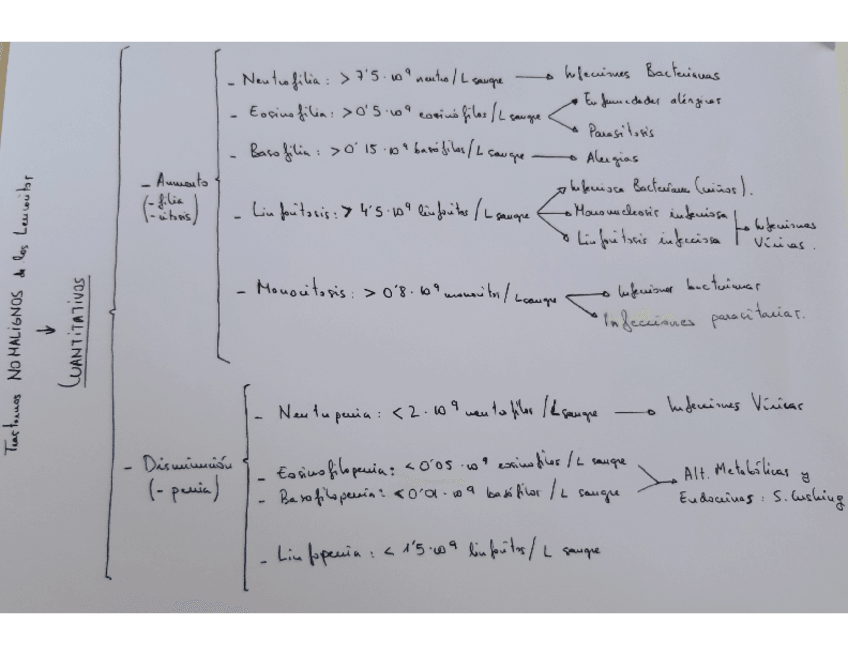 Trastornos NO MALIGNOS de los Leucocitos
↓
CUANTITATIVOS
- Aumento
(- filia
- citosis)
- Neutrofilia : > 7'5 · 10⁹ neutro / L sangre → Infecciones Bacterianas
- Eosinofilia : > 0'5 · 10⁹ eosinófilos / L sangre
Enfermedades alérgicas
Parasitosis
- Basofilia : > 0'15 · 10⁹ basófilos / L sangre → Alergias
- Linfocitosis : > 4'5 · 10⁹ linfocitos / L sangre
Infecciosa Bacteriana (niños).
Mononucleosis infecciosa
Linfocitosis infecciosa
Infecciones
Víricas.
- Monocitosis : > 0'8 · 10⁹ monocitos / L sangre
Infecciones bacterianas
Infecciones paracitarias.
- Disminución
(- penia)
- Neutropenia : < 2 · 10⁹ neutrofilos / L sangre → Infecciones Víricas
- Eosinofilopenia : < 0'05 · 10⁹ eosinofilos / L sangre
- Basofilopenia : < 0'01 · 10⁹ basófilos / L sangre
Alt. Metabólicas y
Endocrinas : S. Cushing
- Linfopenia : < 1'5 · 10⁹ linfocitos / L sangre